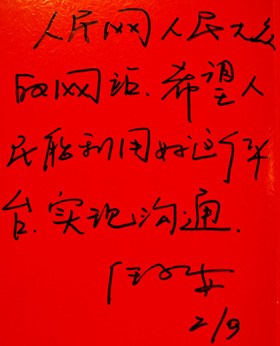 人民网人民大众
的网站.希望人
民能利用好这个平
台.实现沟通.
2/9